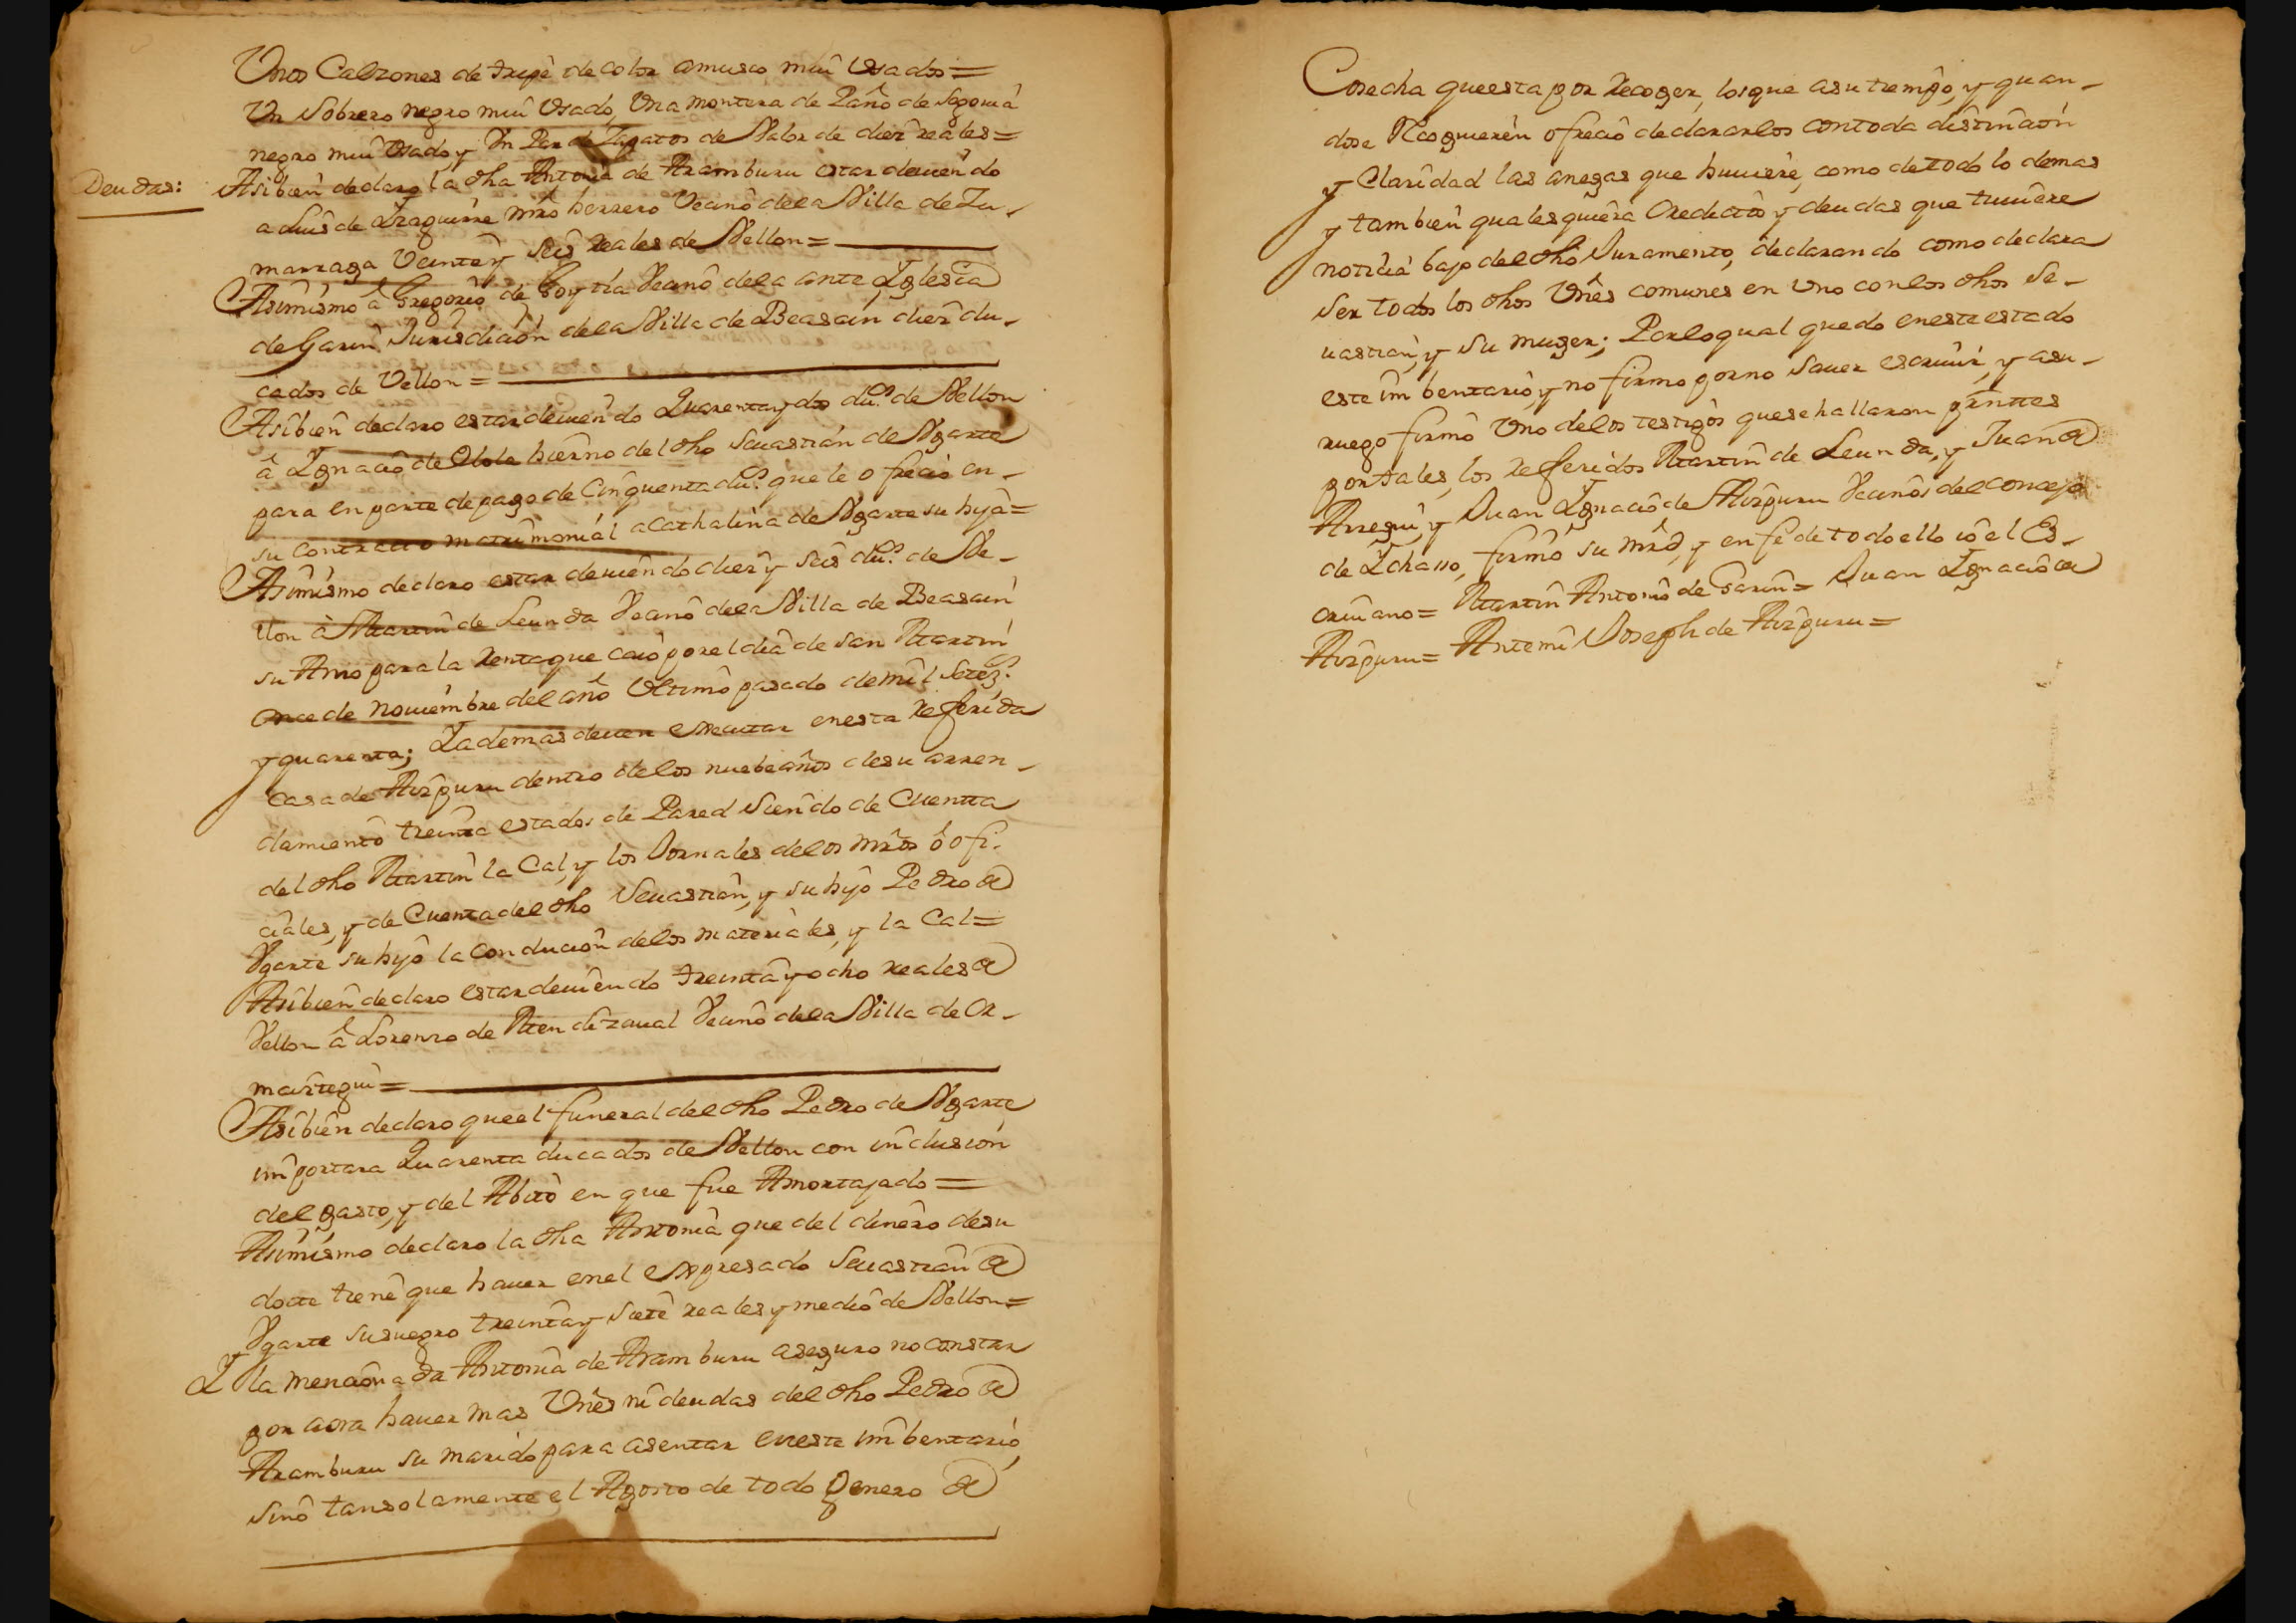 Unos Calzones de tripe de color amusco mui Usados=
Un Sobrero negro mui Usado, Una montera de Paño de Segovia
negro mui Usado, y Un Par de Zapatos de Valor de diez reales=
Deudas:
Asibien declaro la dha Antonia de Aramburu estar deuiendo
a Luis de Izaguirre mro herrero Vecino dela Villa de Zu-
marraga Veinte y seis Reales de Vellon=
Asimismo â Gregorio de Goytia Vecino dela ante Iglesia
de Garin Jurisdicion dela Villa de Beasain diez du-
cados de Vellon=
Asibien declaro estar deuiendo Quarenta y dos dus. de Vellon
â Ignacio de Olola hierno del dho Seuastian de Vgarte
para en parte de pago de Cinquenta dus. que le ofrecio en-
su Contracto matrimonial a Cathalina de Vgarte su hija=
Asimismo declaro estar deuiendo diez y seis dus. de Ve-
llon â Martin de Leunda Vecino dela Villa de Beasain
su Amo para la Renta que caio por el dia de san Martin
once de Nouiembre del año Ultimo pasado de mil Setez.s
y quarenta; I ademas deuen executar en esta Referida
casa de Aizpuru dentro delos nuebe años de su arren-
damiento treinta estados de Pared Siendo de Cuenta
del dho Martin la Cal, y los Jornales delos mros ô ofi-
ciales, y de Cuenta del dho Seuastian, y su hijo Pedro de
Vgarte su hijo la conducion delos materiales, y la Cal=
Asibien declaro estar deuiendo treinta y ocho reales de
Vellon â Lorenzo de Mendizaual Vecino dela Villa de Or-
maiztegui=
Asibien declaro que el funeral del dho Pedro de Vgarte
importara Quarenta ducados de Vellon con inclusion
del gasto, y del Abito en que fue Amortajado=
Asimismo declaro la dha Antonia que del dinero de su
docte tiene que hauer en el expresado Seuastian de
Vgarte su suegro treinta y siete reales y medio de Vellon=
I la mencionada Antonia de Aramburu aseguro no constar
por aora hauer mas Vnês ni deudas del dho Pedro de
Aramburu su marido para asentar en este imbentario,
sino tansolamente el Agosto de todo genero de
Cosecha que esta por Recoger, los que a su tiempo, y quan-
dose Recoguieren ofrecio declararlos con toda distincion
y Claridad las anegas que huuiere, como de todo lo demas
y tambien quales quiera Creditos y deudas que tuuiere
noticia bajo del dho Juramento, declarando como declara
Ser todos los dhos Vnês comunes en Uno con los dhos Se-
uastian, y su muger; Por lo qual quedo en este estado
este imbentario, y no firmo por no Sauer escriuir, y a su-
ruego firmo Uno delos testigos que se hallaron presnttes
por tales, los referidos Martin de Leunda, y Juan de
Arregui, y Juan Ignacio de Aizpuru Vecinos del concejo
de Ichasso, firmo su mrd, y en fe de todo ello io el Es-
criuano= Martin Antonio de Garin= Juan Ignacio de
Aizpuru= Antemi Joseph de Aizpuru=